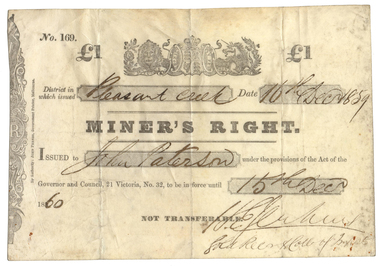 No. 169.
£1 £1
District in which issued Pleasant Creek Date 16th Decr 1859
MINER'S RIGHT.
ISSUED to John Paterson under the provisions of the Act of the
Governor and Council, 21 Victoria, No. 32, to be in force until 15th Decr
1860
NOT TRANSFERABLE.